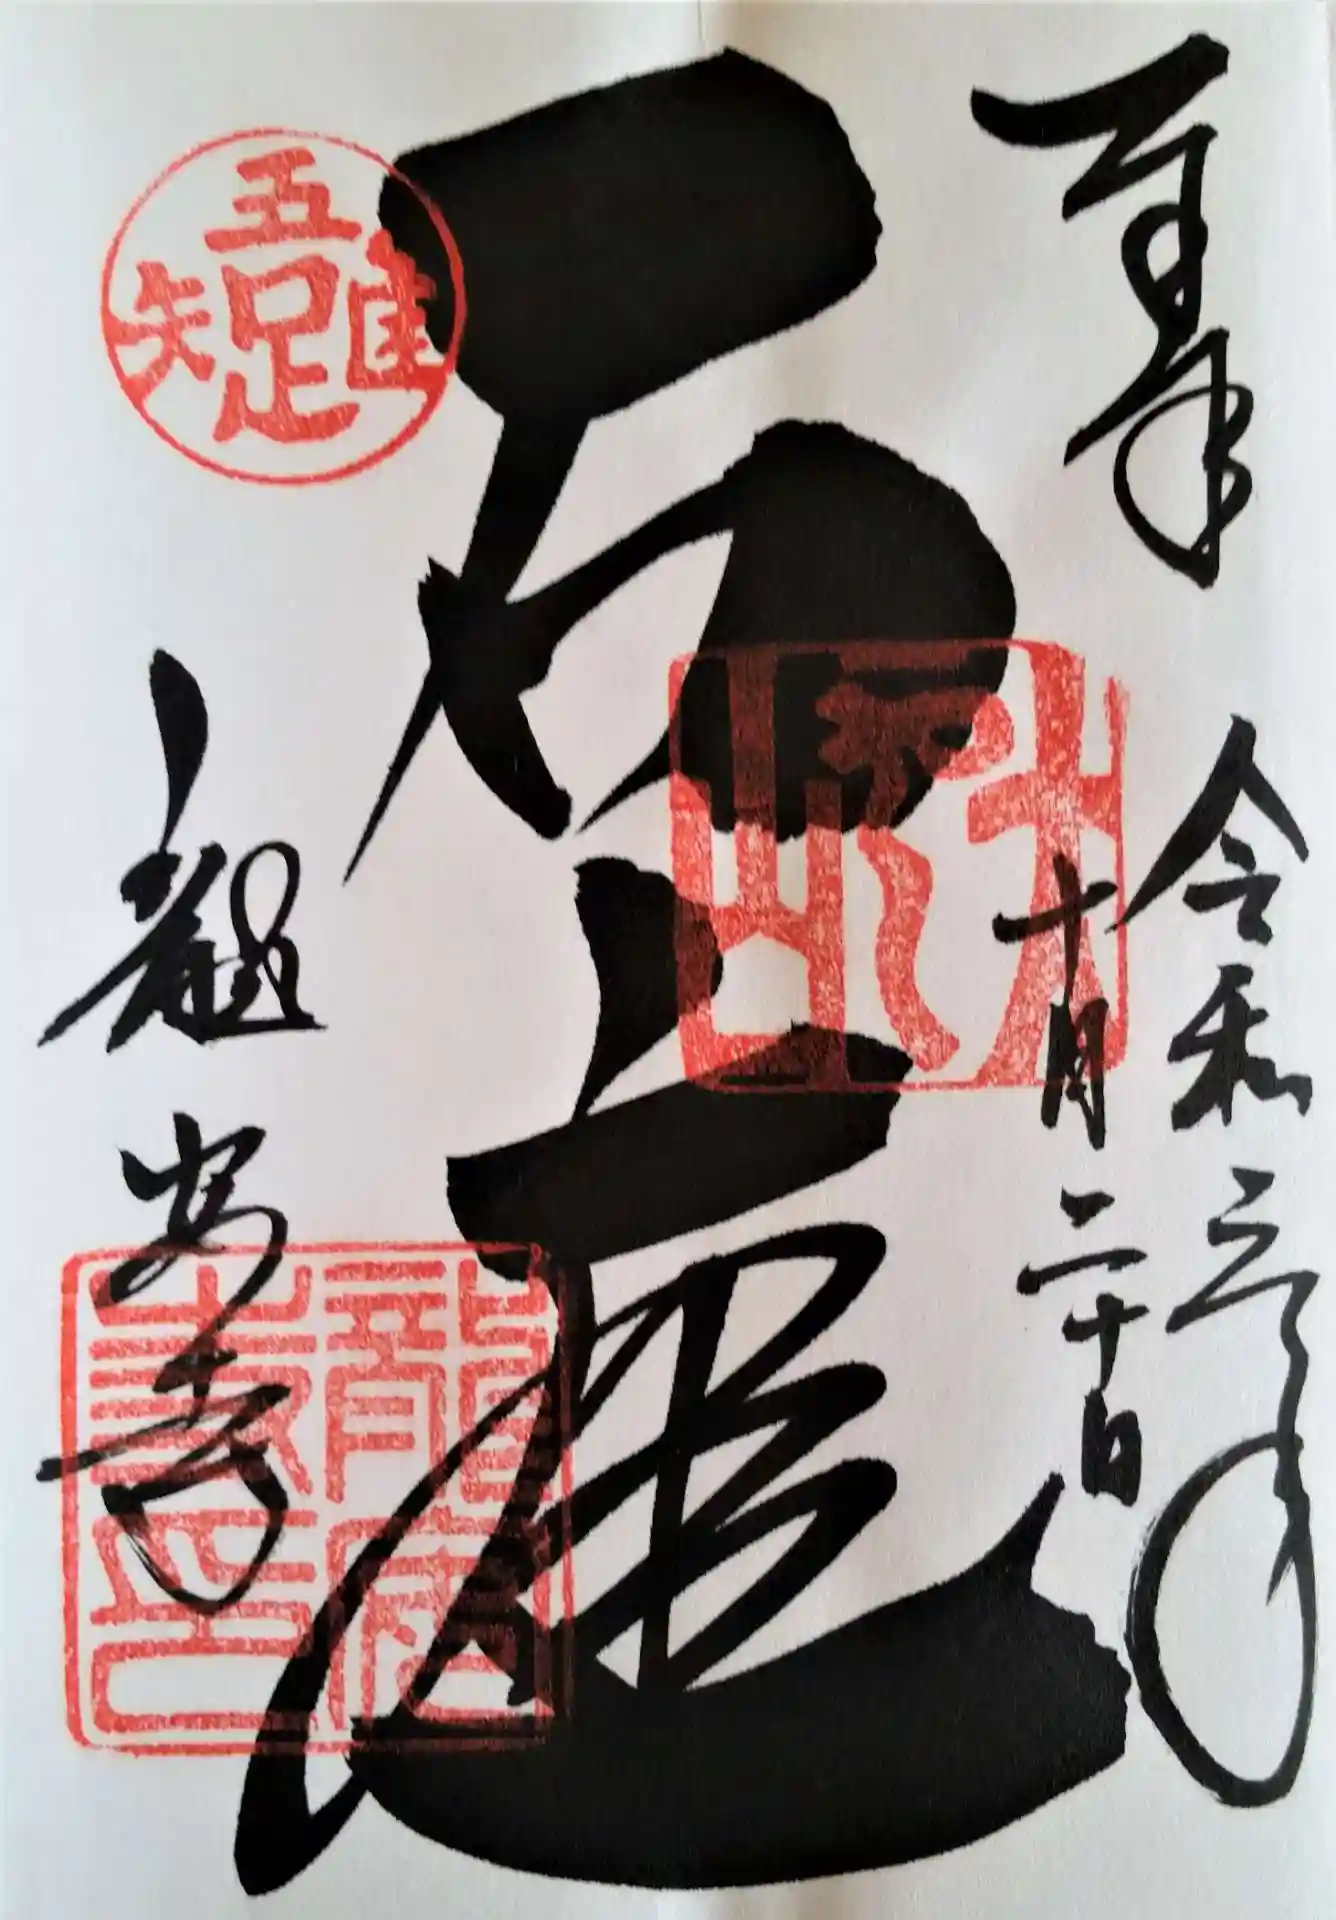 奉拝
令和三年
十月二十日
石庭
龍安寺
吾唯足知
龍安寺印